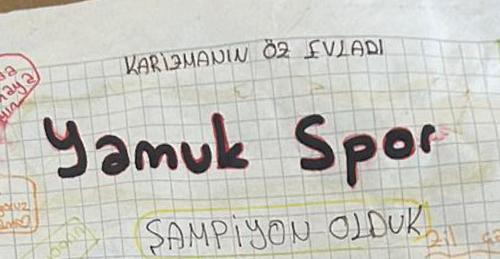 KARİZMANIN ÖZ EVLADI
Yamuk Spor
ŞAMPİYON OLDUK
2:1